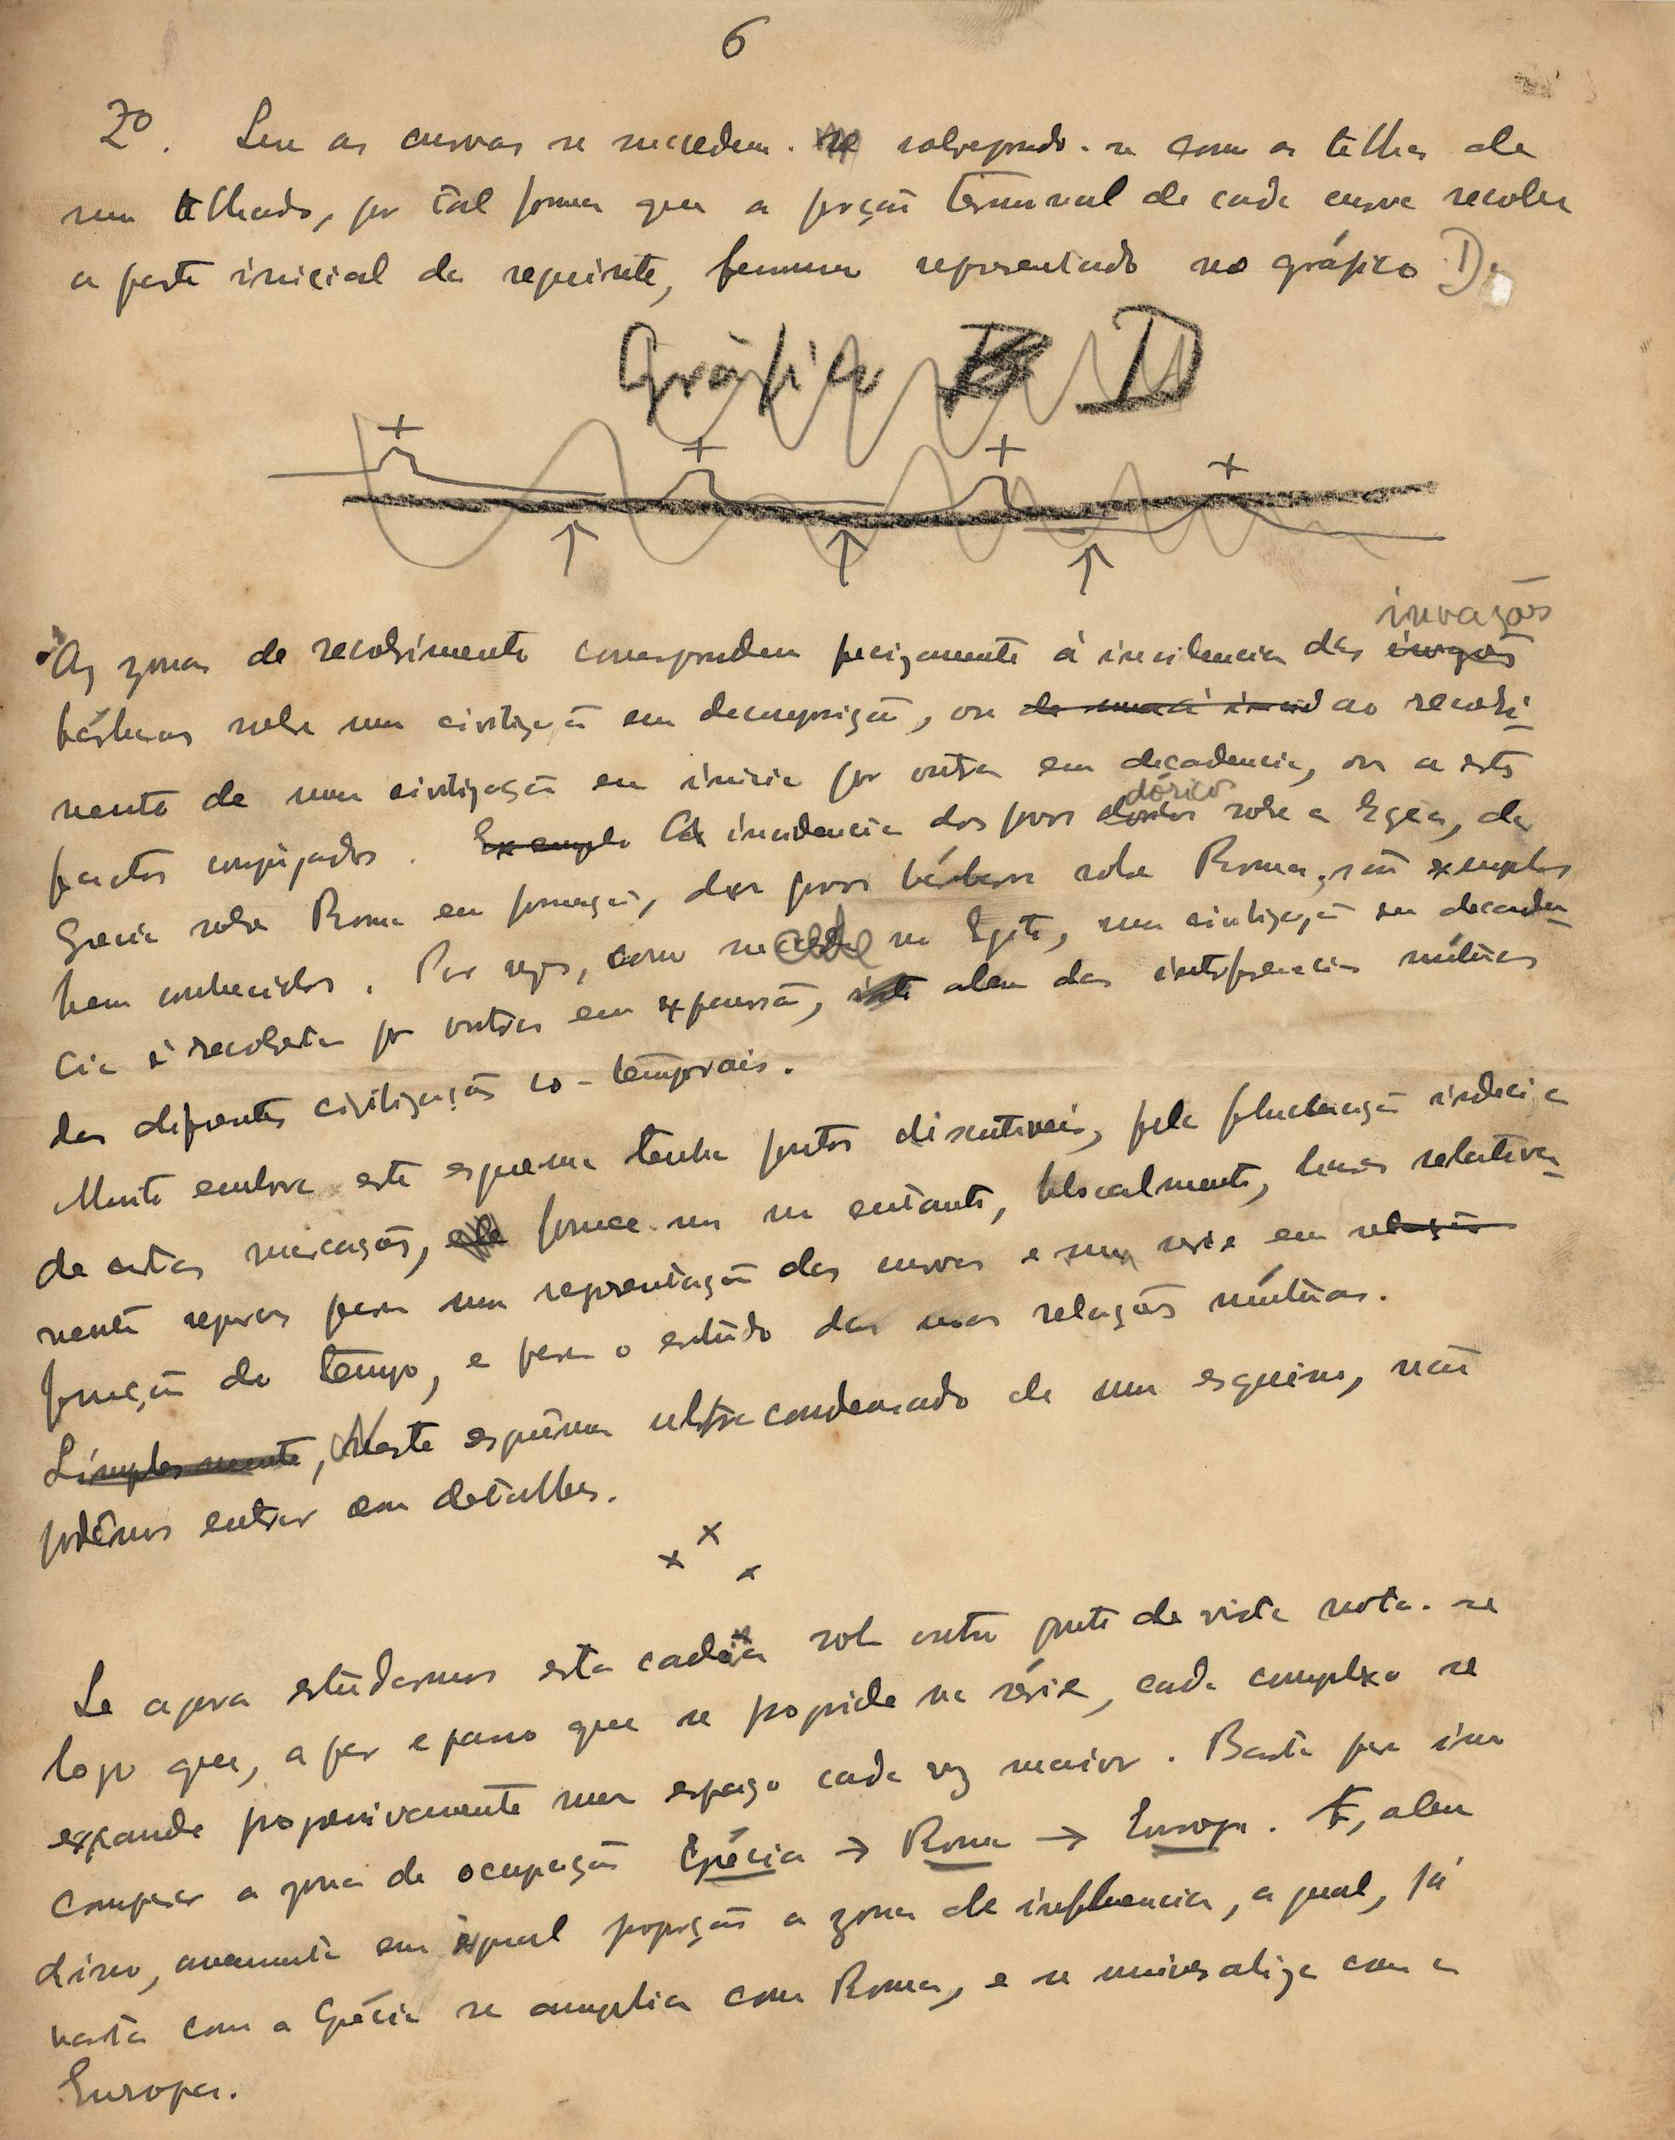 6
2º. Que as curvas se succedem sobrepondo-se como as telhas de
um telhado, por tal forma que a porção terminal de cada curva recobre
a parte inicial da seguinte, fenomeno representado no gráfico D.
Gráfico D
+ + + +
invasões
As zonas de recobrimento correspondem precisamente á incidencia das invasões
bárbaras sobre uma civilização em decomposição, ou ao recobri-
mento de uma civilização em inicio por outra em decadencia, ou a estes
dóricos
factos conjugados. Exemplo A incidencia dos povos sobre a Egea, da
Grecia sobre Roma em formação, dos povos bárbaros sobre Roma, são exemplos
bem conhecidos. Por vezes, como no Egito, uma civilização em decaden-
cia é recoberta por outras em expansão, alem das interferencias mútuas
das diferentes civilizações co-temporais.
Muito embora este esquema tenha pontos discutiveis, pela fluctuação indecisa
de certas marcações, fornece-nos no entanto, globalmente, bases relativa-
mente seguras para uma representação das curvas e sua serie em relação
função do tempo, e para o estudo das suas relações mútuas.
Simplesmente, Neste esquema ultra condensado de um esquema, não
podêmos entrar em detalhes.
x x x
Se agora estudarmos esta cadeia sob outro ponto de vista nota-se
logo que, a par e passo que se progride na série, cada complexo se
expande progressivamente num espaço cada vez maior. Basta para isso
comparar a zona de ocupação Grécia → Roma → Europa. E, alem
disso, aumenta em igual proporção a zona de influencia, a qual, já
vasta com a Grécia se amplia com Roma, e se universaliza com a
Europa.